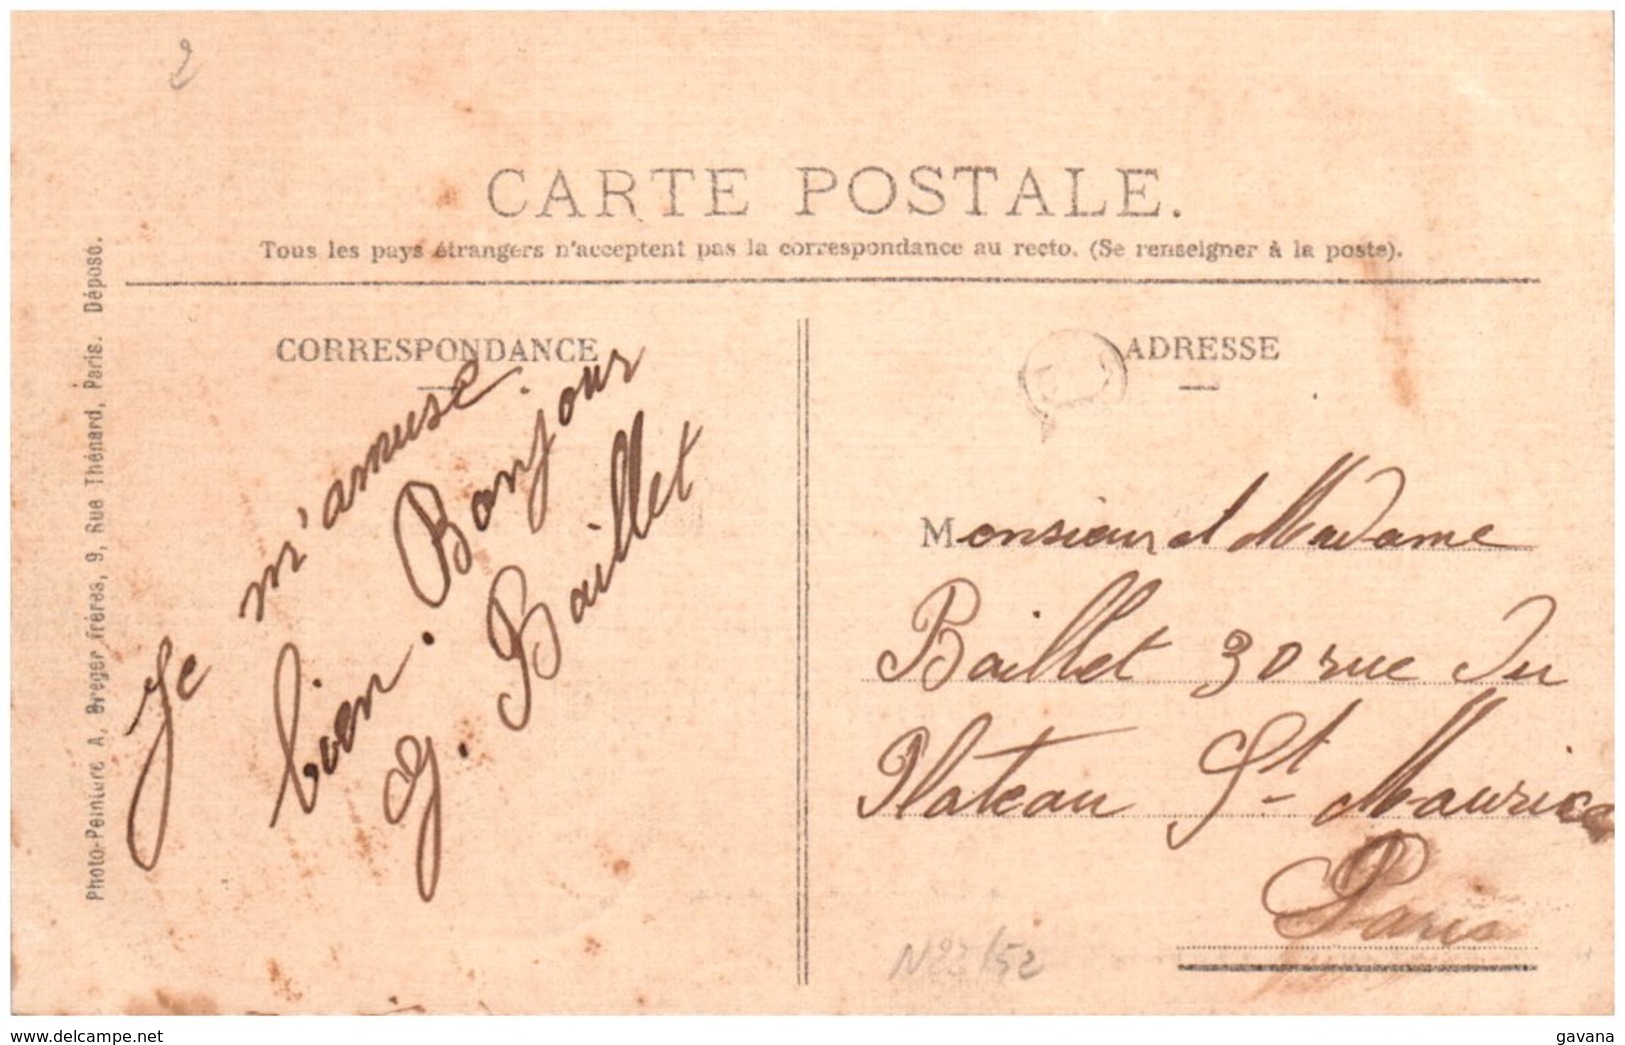 2
CARTE POSTALE.
Tous les pays étrangers n'acceptent pas la correspondance au recto. (Se renseigner à la poste).
Photo-Peinture A. Breger frères, 9, Rue Thénard, Paris. Déposé.
CORRESPONDANCE
Je m'amuse
bien. Bonjour
G. Baillet
ADRESSE
Monsieur et Madame
Baillet 30 rue du
Plateau St Maurice
Paris
N23/52
delcampe.net
gavana